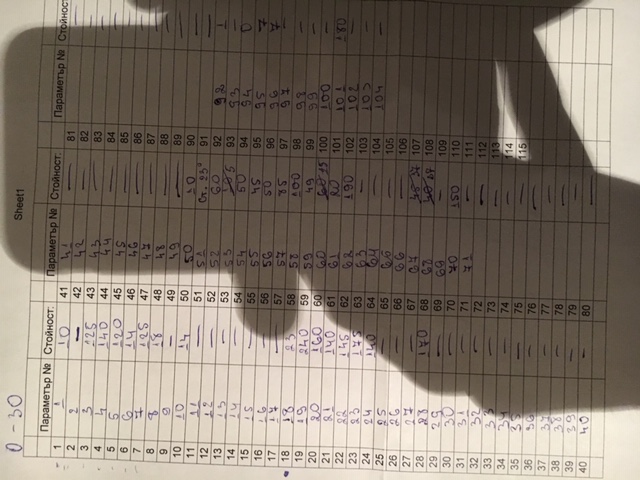 0 - 30
Sheet1
Параметър № Стойност Параметър № Стойност Параметър № Стойност
1 1 10 41 41 — 81 —
2 2 — 42 42 — 82 —
3 3 125 43 43 — 83 —
4 4 140 44 44 — 84 —
5 5 120 45 45 — 85 —
6 6 14 46 46 — 86 —
7 7 125 47 47 — 87 —
8 8 18 48 48 — 88 —
9 9 — 49 49 — 89 —
10 10 14 50 50 10 90
11 11 — 51 51 Ст. 23° 91
12 12 — 52 52 60 92 92 1
13 13 — 53 53 93 93 —
14 14 — 54 54 50 94 94 0
15 15 — 55 55 45 95 95
16 16 — 56 56 50 96 96
17 17 — 57 57 97 97 —
18 18 23 58 58 100 98 98 —
19 19 240 59 59 49 99 99 —
20 20 160 60 60 15 100 100 —
21 21 140 61 61 20 101 101 180
22 22 145 62 62 190 102 102 —
23 23 175 63 63 — 103 103 —
24 24 140 64 64 — 104 104 —
25 25 — 65 65 — 105
26 26 — 66 66 — 106
27 27 — 67 67 107
28 28 170 68 68 108
29 29 — 69 69 — 109
30 30 — 70 70 150 110
31 31 — 71 71 — 111
32 32 — 72 — 112
33 33 — 73 — 113
34 34 — 74 — 114
35 35 — 75 — 115
36 36 — 76 —
37 37 — 77 —
38 38 — 78 —
39 39 — 79 —
40 40 — 80 —